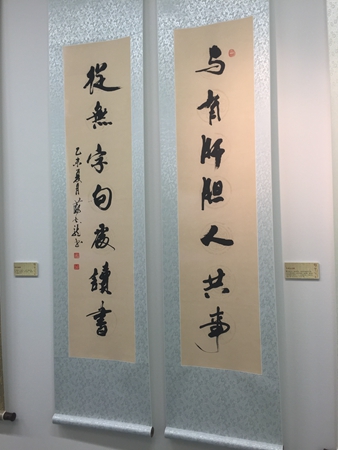 与有肝胆人共事
從無字句處讀書
乙未夏月